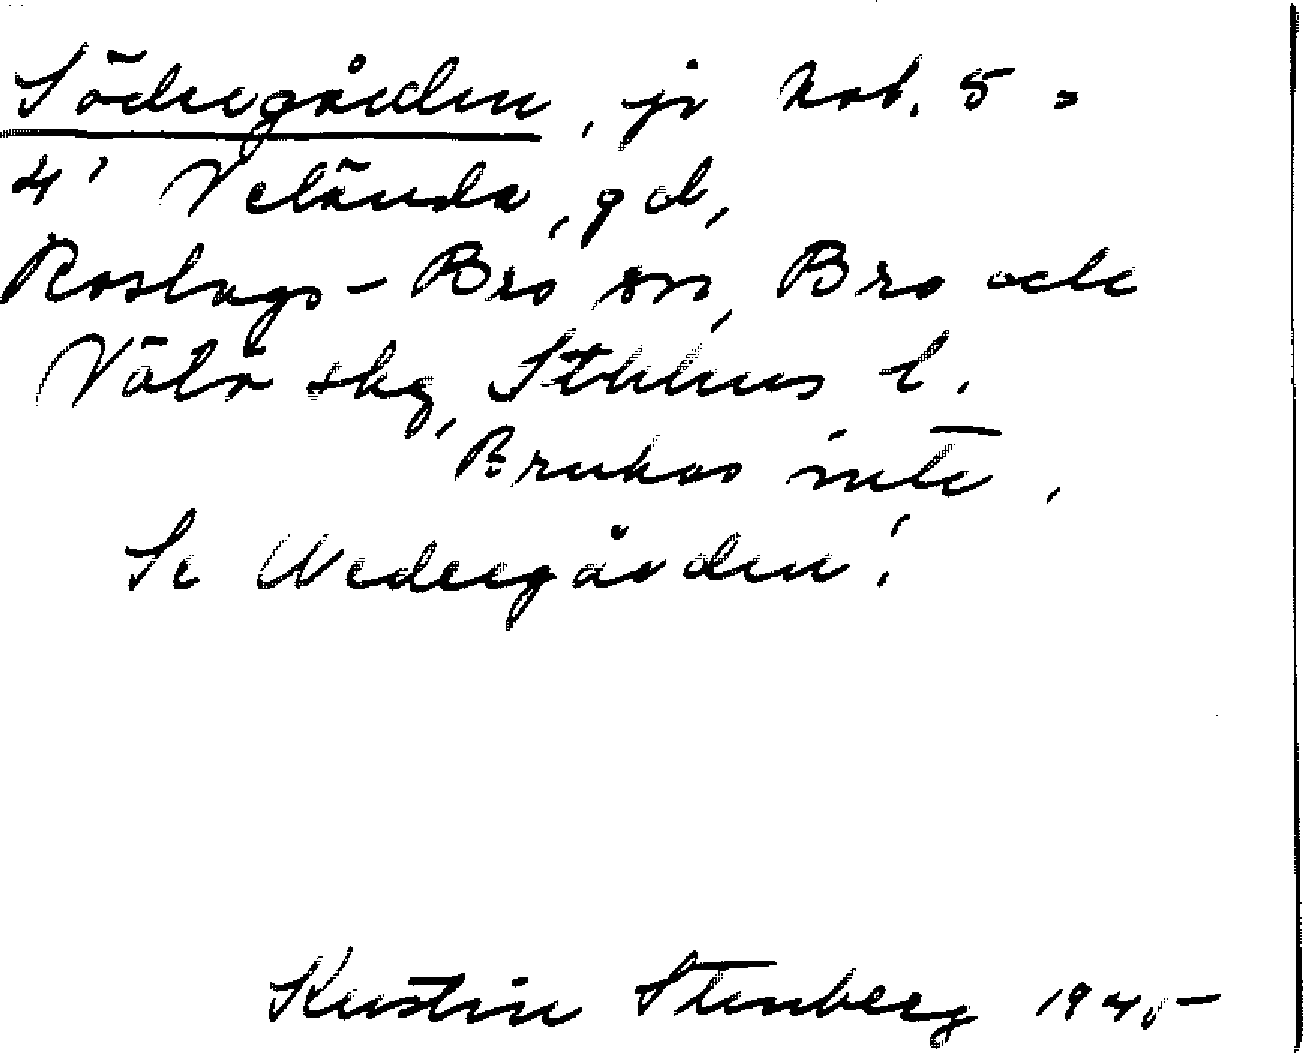 Södergården, jr hos. 5 =
4' Velända, gd,
Roslags-Bro sn, Bro och
Vätö skg, Sthlms l.
Brukas inte.
Se Nedergården!
Kerstin Stenberg 1945